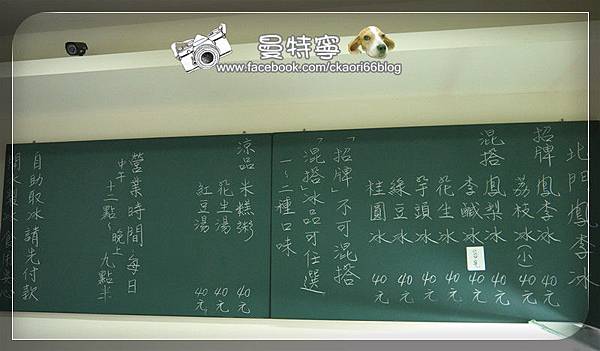 曼特寧
www.facebook.com/ckaori66blog
北門鳳李冰
招牌 鳳李冰 40元
荔枝冰(小) 40元
混搭 鳳梨冰 40元
李鹹冰
花生冰 40元
芋頭冰 40元
綠豆冰 40元
桂圓冰 40元
「招牌」不可混搭
「混搭」冰品可任選
一~二種口味
涼品 米糕粥 40元
花生湯 40元
紅豆湯 40元
營業時間 每日
中午十二點~晚上九點半
自助取冰 請先付款